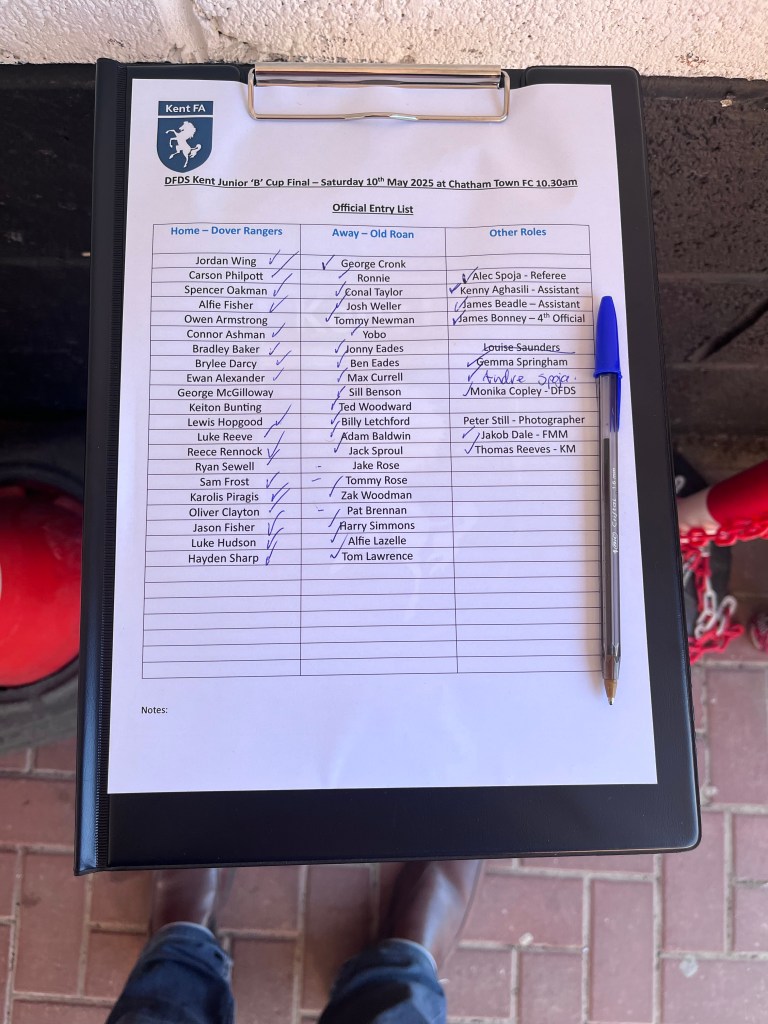 Kent FA
DFDS Kent Junior ‘B’ Cup Final – Saturday 10th May 2025 at Chatham Town FC 10.30am
Official Entry List
Home – Dover Rangers
Jordan Wing
Carson Philpott
Spencer Oakman
Alfie Fisher
Owen Armstrong
Connor Ashman
Bradley Baker
Brylee Darcy
Ewan Alexander
George McGilloway
Keiton Bunting
Lewis Hopgood
Luke Reeve
Reece Rennock
Ryan Sewell
Sam Frost
Karolis Piragis
Oliver Clayton
Jason Fisher
Luke Hudson
Hayden Sharp
Away – Old Roan
George Cronk
Ronnie
Conal Taylor
Josh Weller
Tommy Newman
Yobo
Jonny Eades
Ben Eades
Max Currell
Sill Benson
Ted Woodward
Billy Letchford
Adam Baldwin
Jack Sproul
Jake Rose
Tommy Rose
Zak Woodman
Pat Brennan
Harry Simmons
Alfie Lazelle
Tom Lawrence
Other Roles
Alec Spoja - Referee
Kenny Aghasili - Assistant
James Beadle – Assistant
James Bonney – 4th Official
Louise Saunders
Gemma Springham
Andre Spoja.
Monika Copley - DFDS
Peter Still - Photographer
Jakob Dale - FMM
Thomas Reeves - KM
Notes: